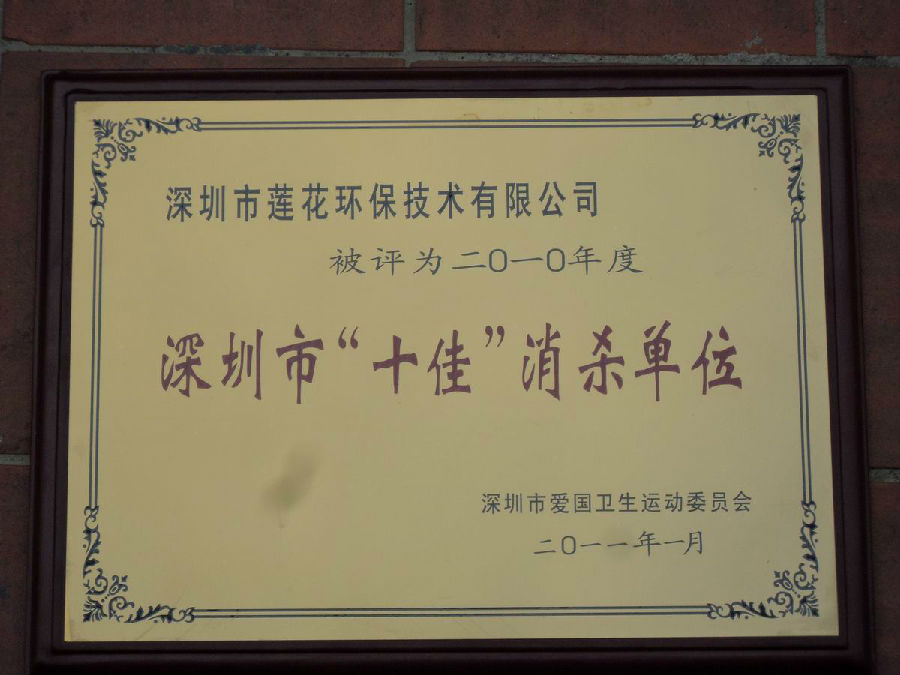 深圳市莲花环保技术有限公司
被评为二〇一〇年度
深圳市“十佳”消杀单位
深圳市爱国卫生运动委员会
二〇一一年一月